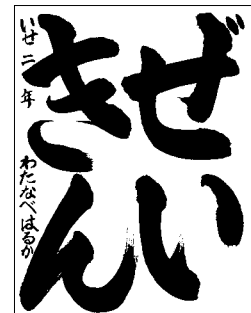 ぜい
きん
いせ 二年 わたなべはるか